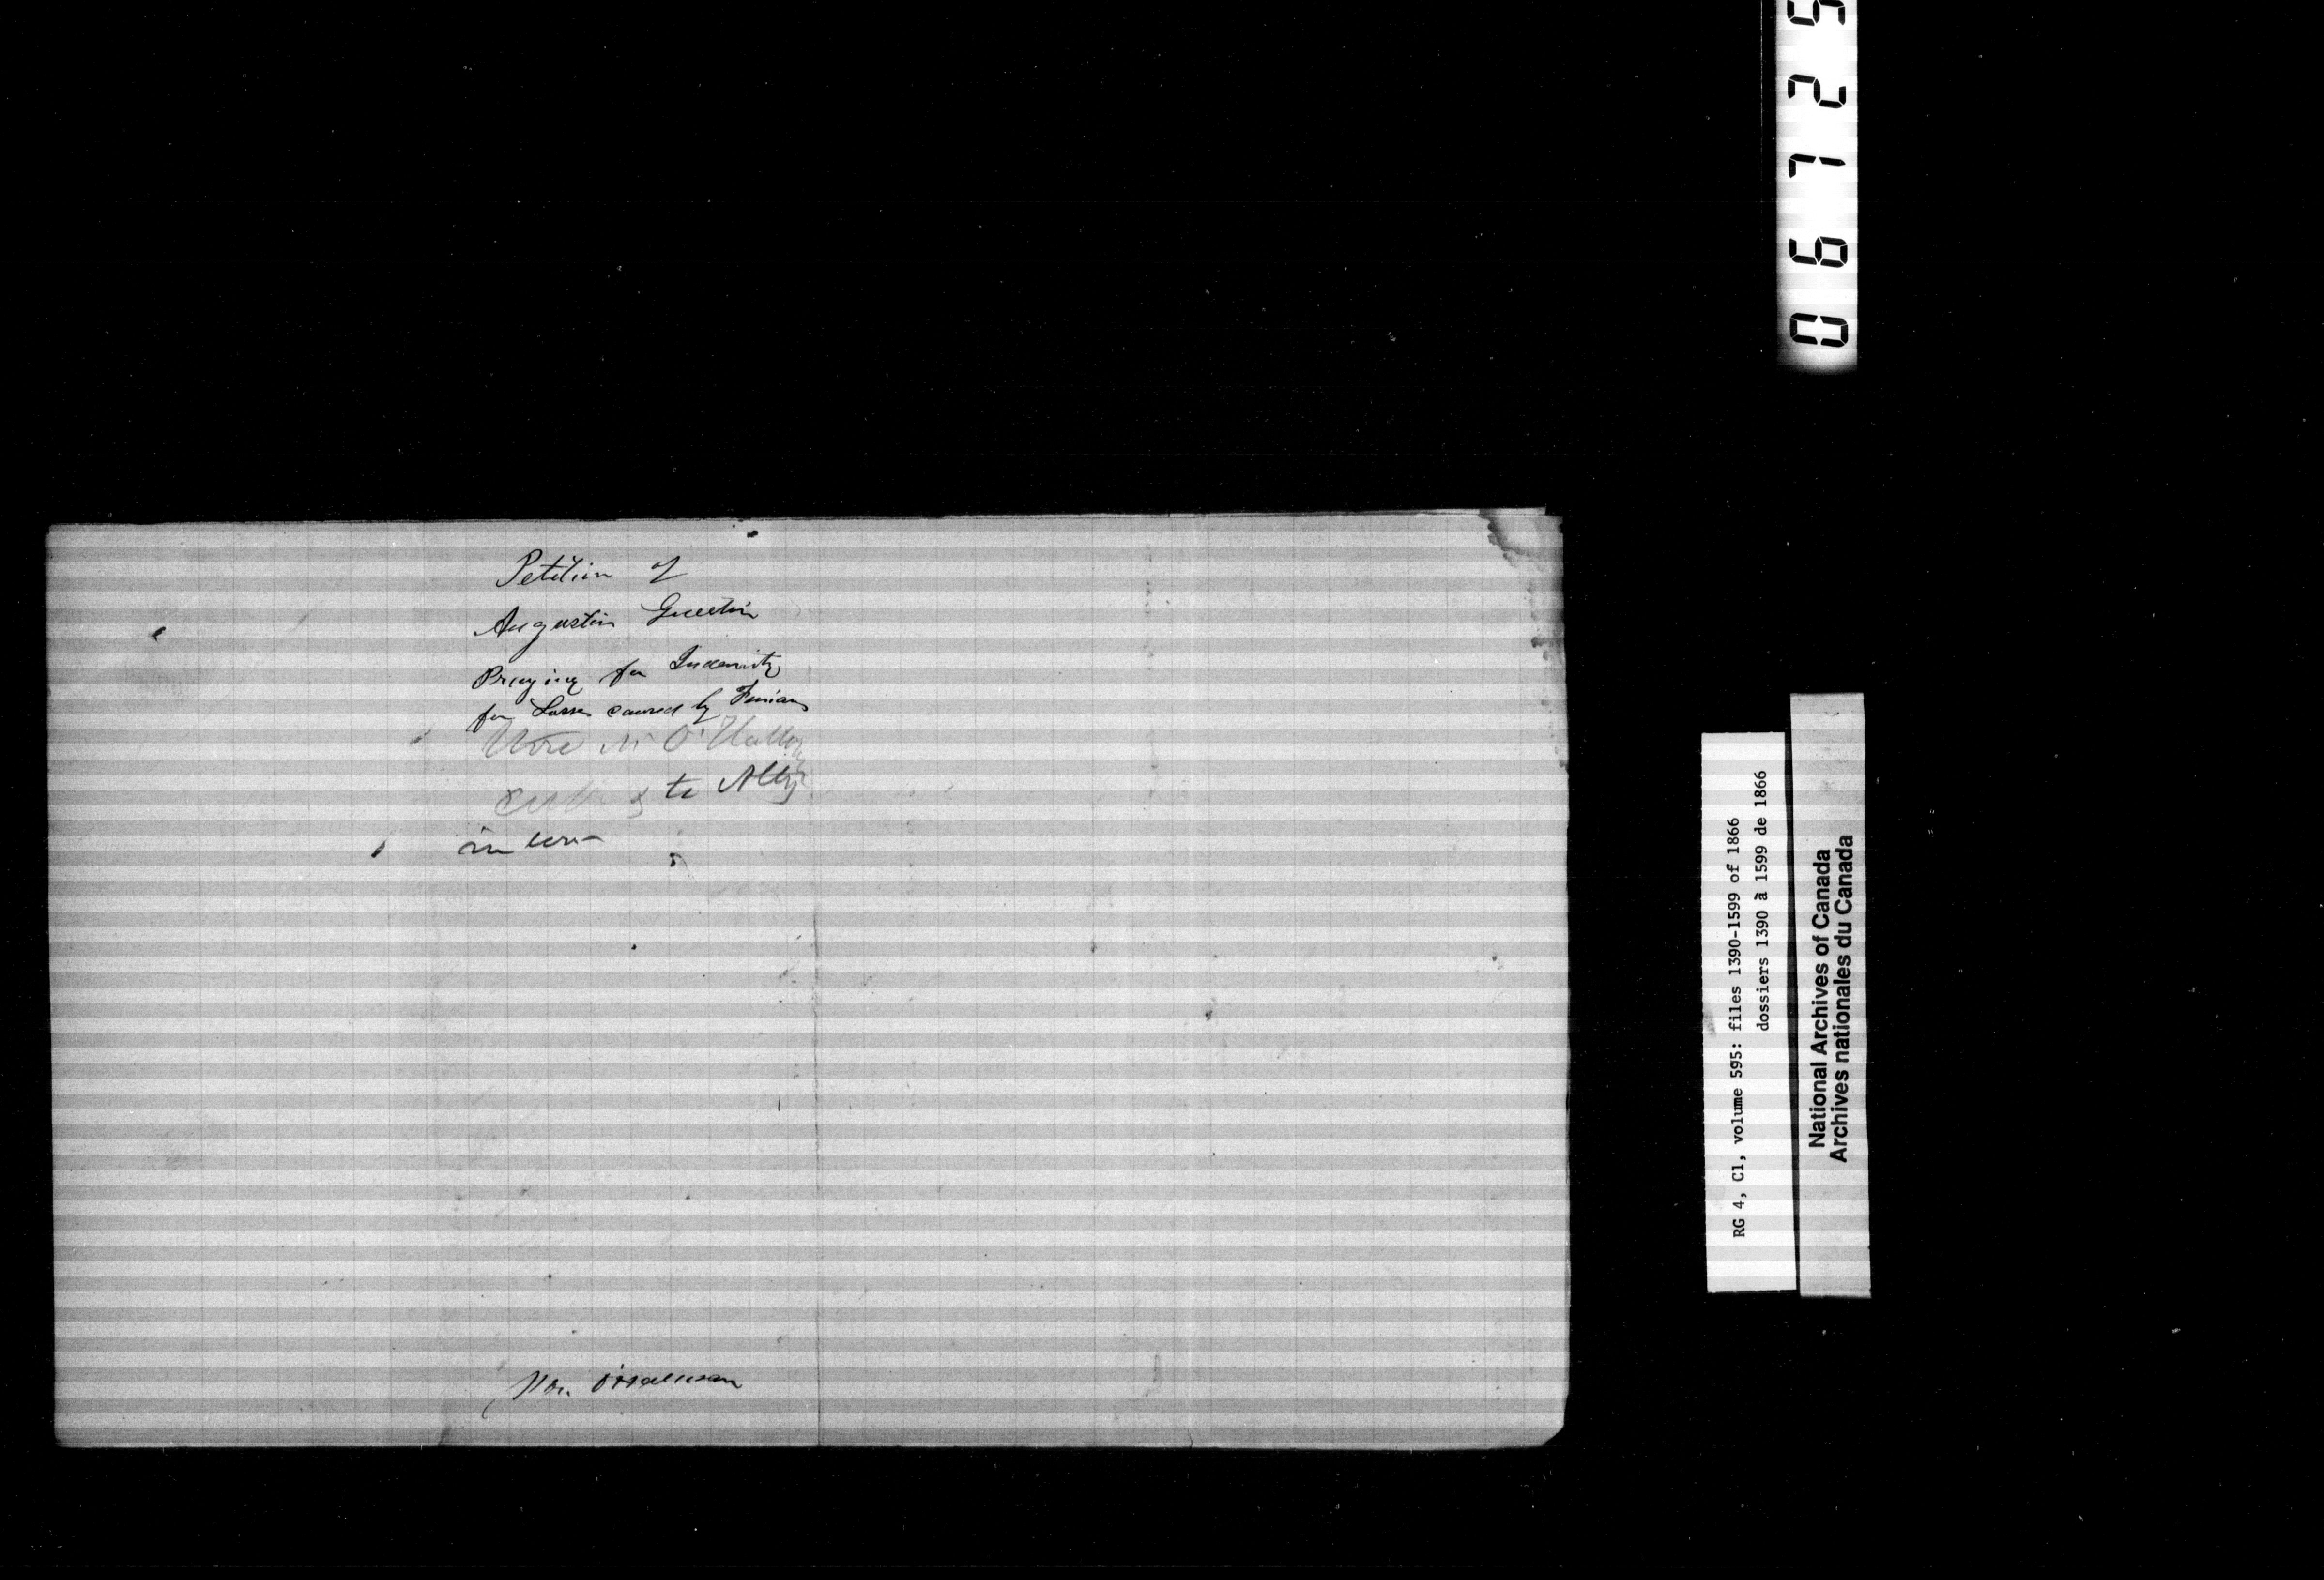 Petition of
Augustin Guertin
Praying for Indemnity
for Losses caused by Fenians
O'Hallor
to Atty
in
Mr. O'Halloran
0 6 7 2 5
RG 4, C1, volume 595: files 1390-1599 of 1866
dossiers 1390 à 1599 de 1866
National Archives of Canada
Archives nationales du Canada